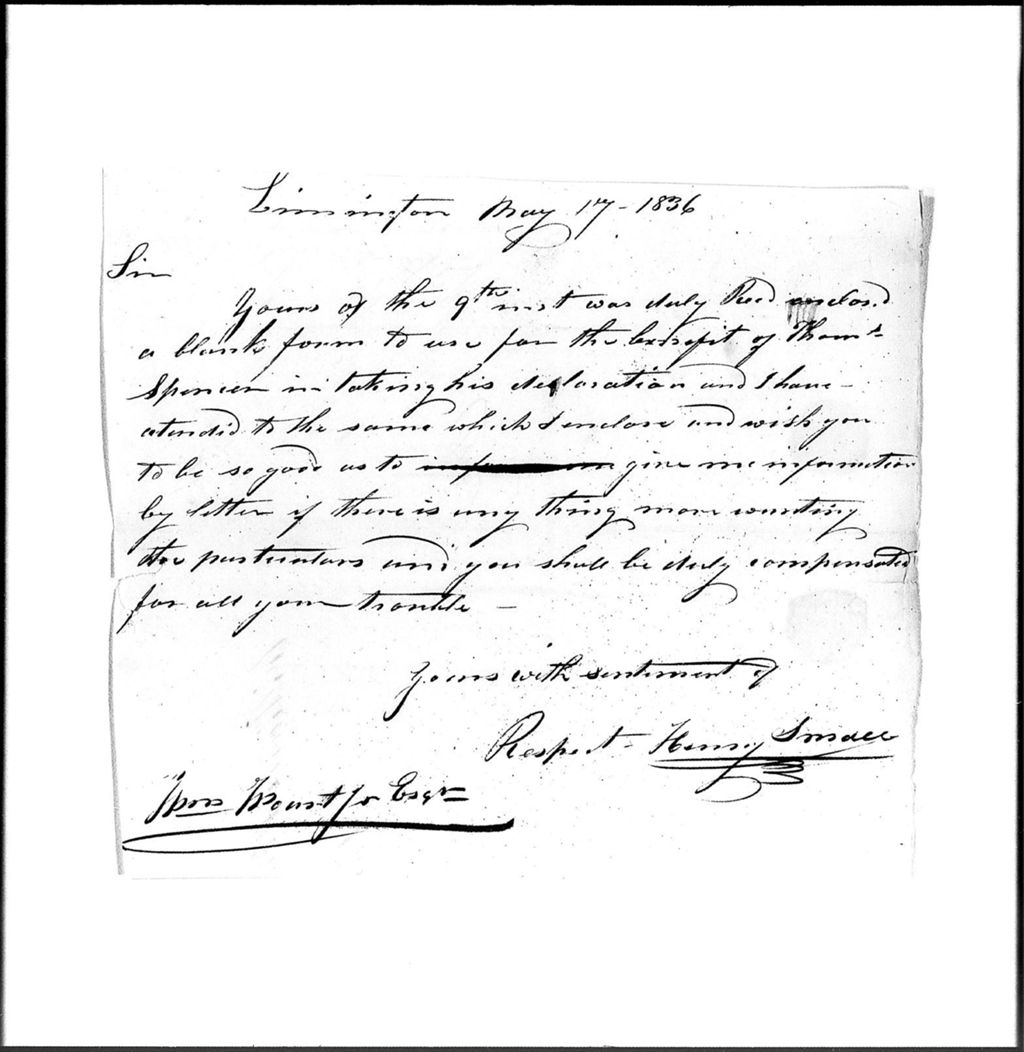 Limington May 17 - 1836
Sir
Yours of the 9th inst was duly Recd enclosd
a blank form to use for the benefit of Thoms
Spencer in taking his declaration and I have
atendid to the same which I enclose and wish you
to be so good as to give me information
by letter if there is any thing more wanting
the particulars and you shall be duly compensated
for all your trouble -
Yours with sentiment of
Respect - Henry Small
Mountfor Esqr